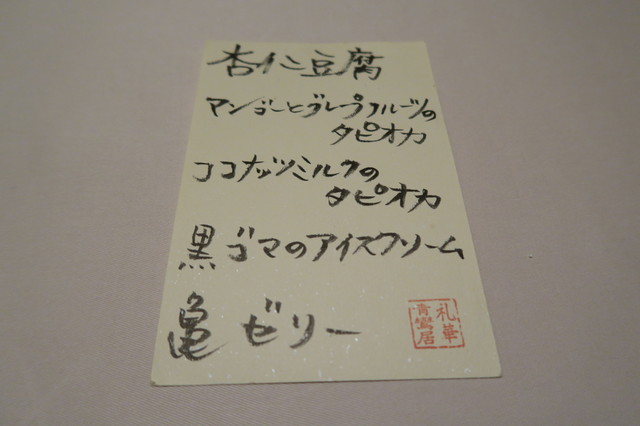 杏仁豆腐
マンゴーとグレープフルーツの
タピオカ
ココナッツミルクの
タピオカ
黒ゴマのアイスクリーム
亀ゼリー
礼華
青鸞居